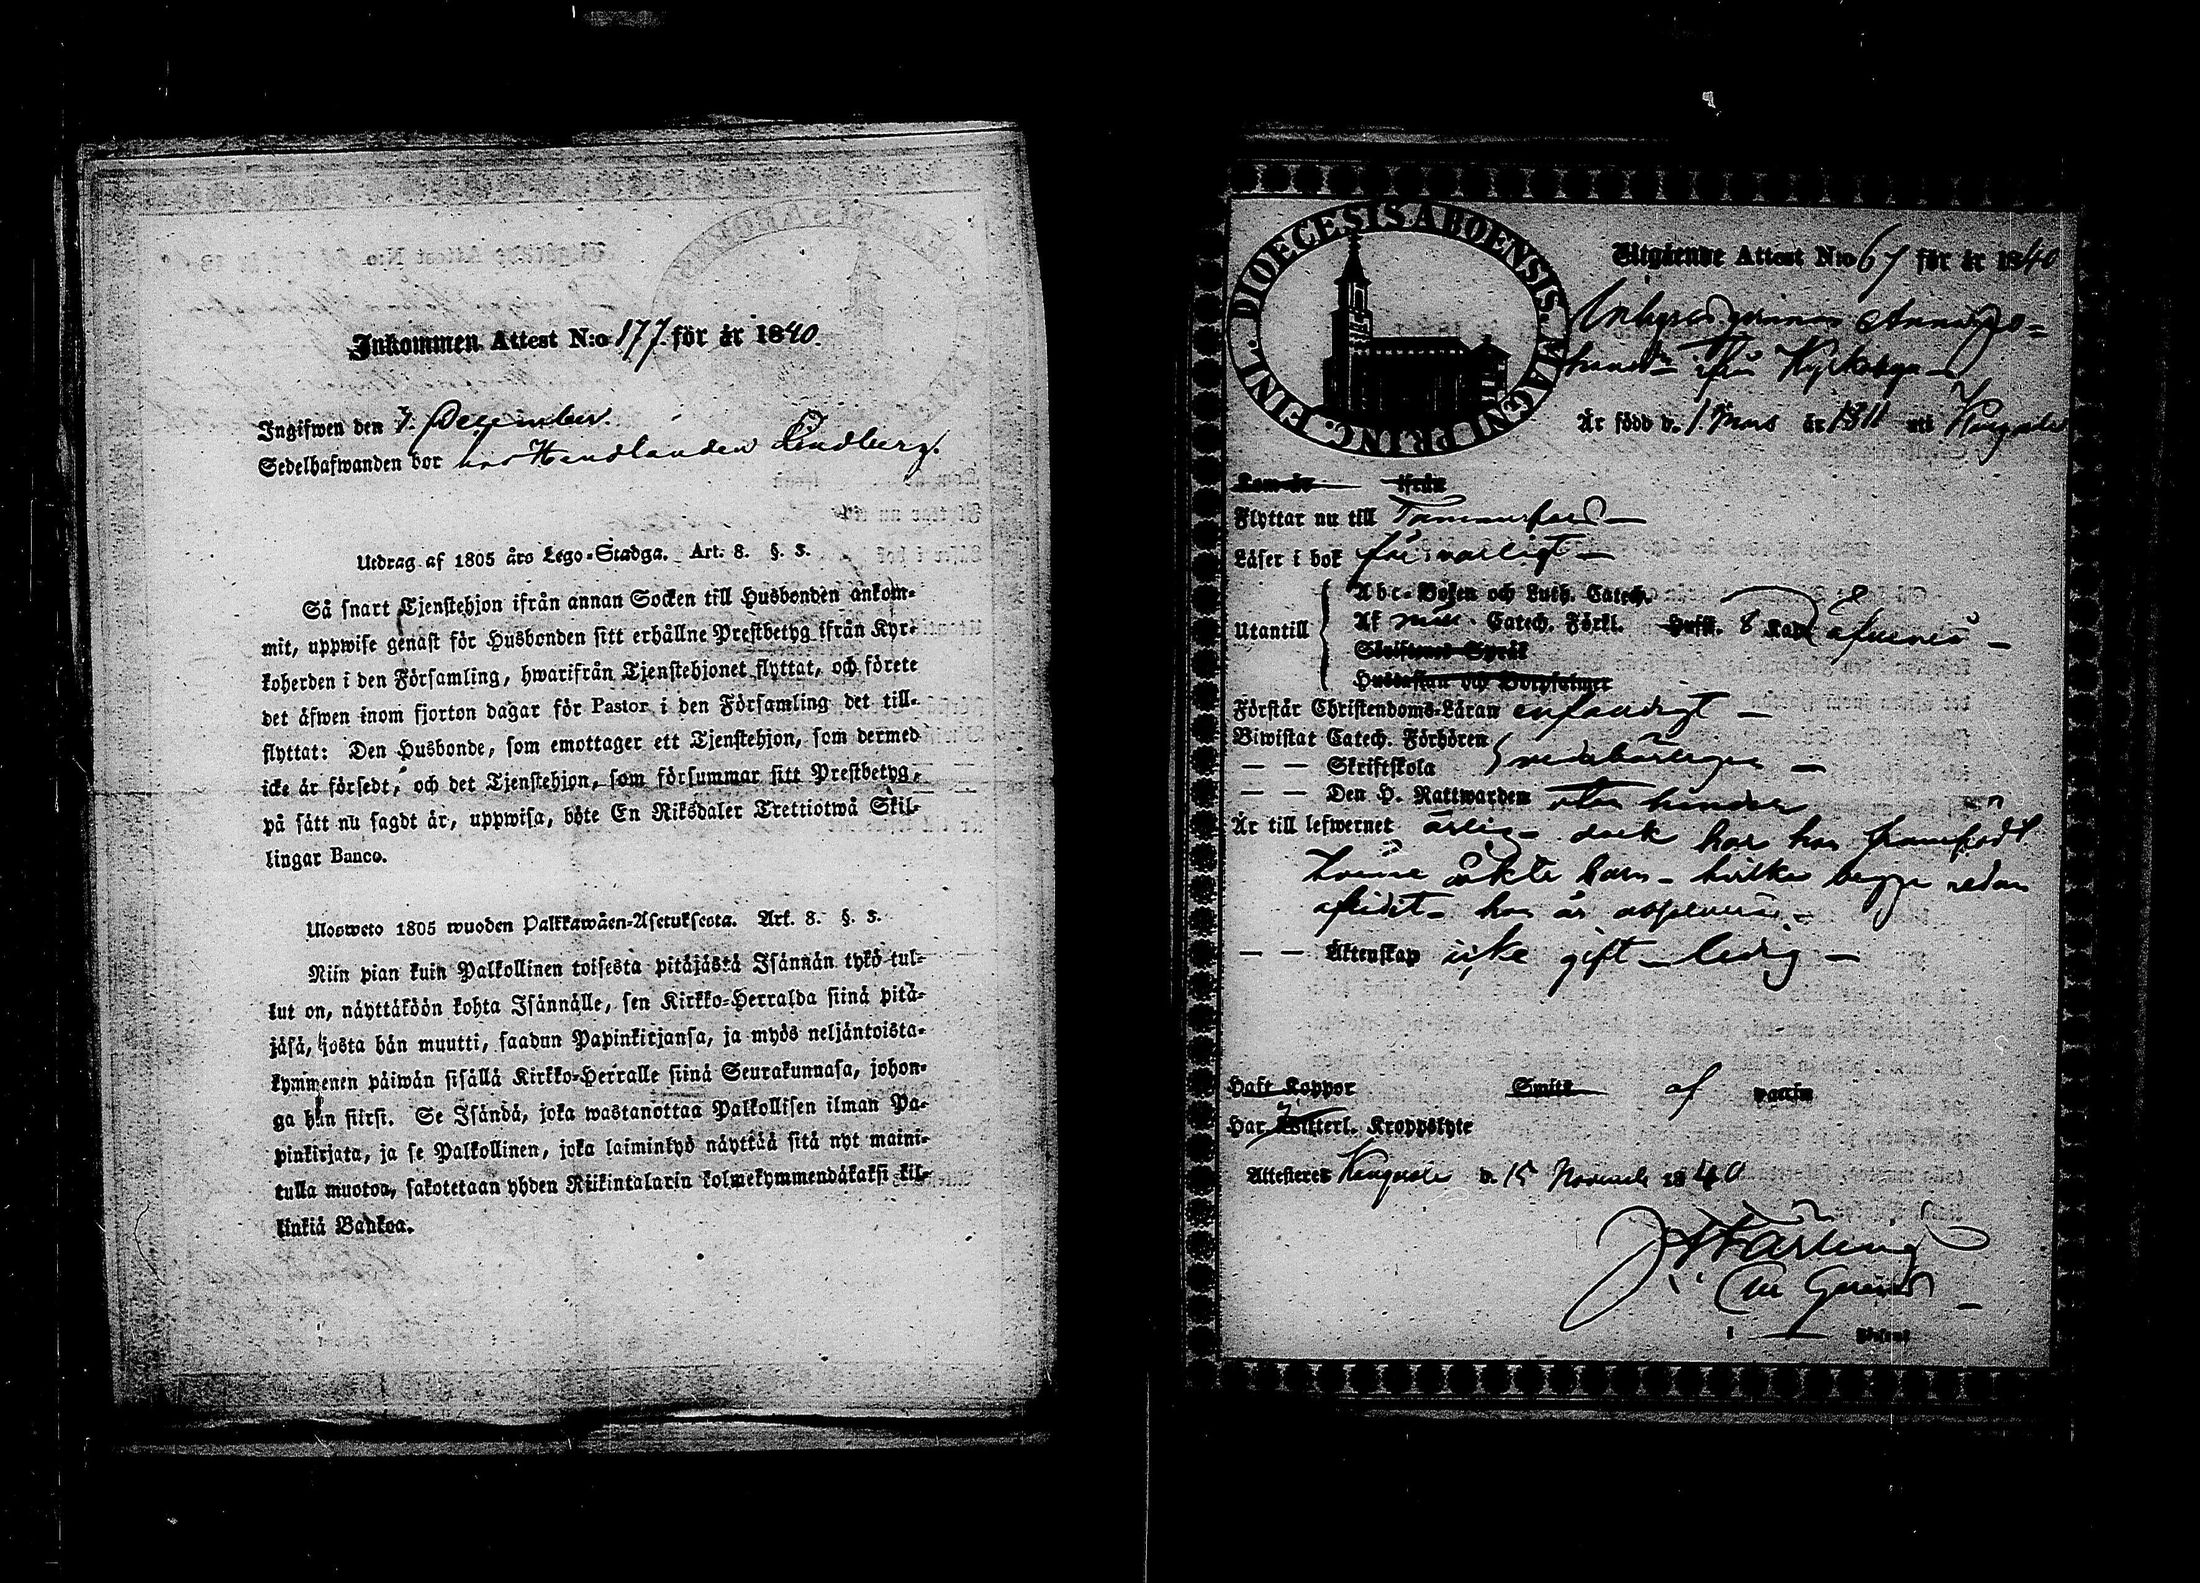 Inkommen Attest N:o 177. för år 1840.
Ingifwen den 7. December.
Sedelhafwanden bor hos Handlanden Lindberg.
Utdrag af 1805 års Lego-Stadga. Art. 8. §. 3.
Så snart Tjenstehjon ifrån annan Socken till Husbonden ankom-
mit, uppwise genast för Husbonden sitt erhållne Prestbetyg ifrån Kyr-
koherden i den Församling, hwarifrån Tjenstehjonet flyttat, och förete
det äfwen inom fjorton dagar för Pastor i den Församling det till-
flyttat: Den Husbonde, som emottager ett Tjenstehjon, som dermed
icke är försedt, och det Tjenstehjon, som försummar sitt Prestbetyg,
på sätt nu sagdt är, uppwisa, böte En Riksdaler Trettiotwå Skil-
lingar Banco.
Ulosweto 1805 wuoden Palkkawäen-Asetuksesta. Art. 8. §. 3.
Niin pian kuin Palkollinen toisesta pitäjästä Isännän tykö tul-
lut on, näyttäköön kohta Isännälle, sen Kirkko-Herralda siinä pitä-
jäsä, josta hän muutti, saadun Papinkirjansa, ja myös neljäntoista-
kymmenen päiwän sisällä Kirkko-Herralle siinä Seurakunnasa, johon-
ga hän siirsi. Se Isändä, joka wastanottaa Palkollisen ilman Pa-
pinkirjata, ja se Palkollinen, joka laiminlyö näyttää sitä nyt maini-
tulla muotoa, sakotetaan yhden Riikintalarin kolmekymmendäkaksi kil-
linkiä Bankoa.
DIOECESIS ABOENSIS. MAGNI PRINC. FINL.
Utgående Attest N:o 67 för år 1840
Anna Jo-
ifrån Kyrkoby
Är född d. 1 Mars år 1811 uti Kangasala
Kom år ifrån
Flyttar nu till Tammerfors
Läser i bok försvarligt
Abc-Boken och Luth. Catech.
Utantill Af Catech. Förkl. Hufst. 8 Kap
Skriftenes Språk
Hustaflan och Botpsalmer
Förstår Christendoms-Läran enfaldigt
Biwistat Catech. Förhören
— — Skriftskola
— — Den H. Nattwarden utan hinder
Är till lefwernet ärlig dock har hon framfödt
tvenne oäkta barn hvilka begge redan
aflidit hon är
— — Äktenskap icke gift ledig
Haft Koppor Smitt af vaccin
Har Witterl. Kroppslyte
Attesteres Kangasala d. 15 November 1840